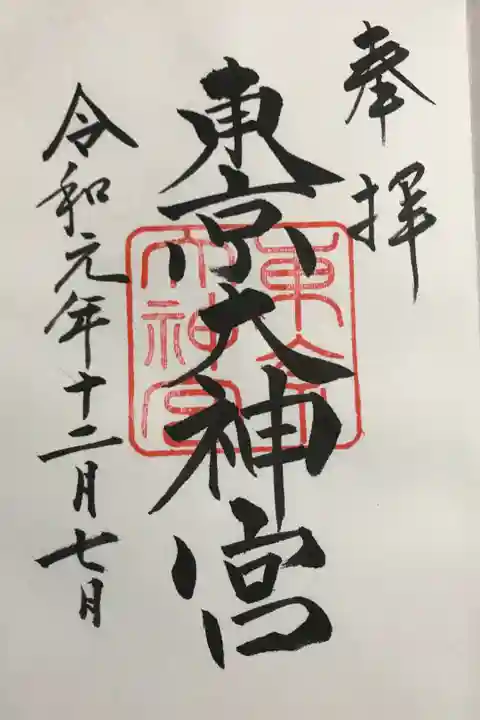 奉拝
東京大神宮
東京
大神宮
令和元年十二月七日